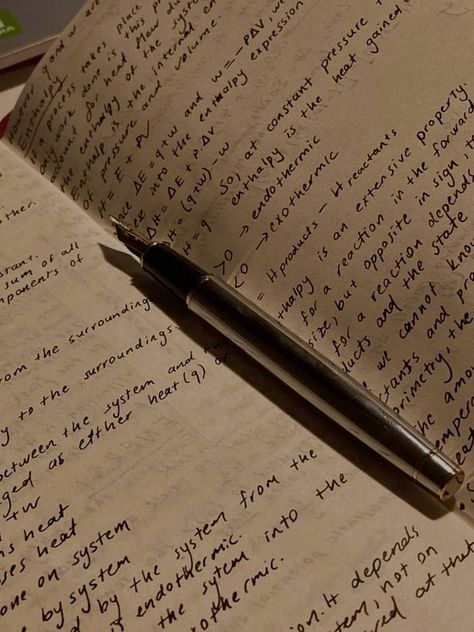 and w
Enthalpy
a process takes place
only work done is this
account for heat flow du
the enthalpy of the syste
Enthalpy is the internal en
of pressure and volume.
H = E + PV
ΔE = q+w and w=-PΔV, we
into the enthalpy expression
ΔH = ΔE + P·ΔV
ΔH = (q+w)-w
ΔH = q
So, at constant pressure t
enthalpy is the heat gained o
>0 → endothermic
<0 → exothermic
= Hproducts - Hreactants
thalpy is an extensive property
for a reaction in the forward
size, but opposite in sign t
for a reaction depends
ducts and the state
we cannot know
ctants and pro
rimetry, the
the amou
temper
eat
other.
nstant.
sum of all
components of
from the surrounding
y to the surroundings.
between the system and th
ged as either heat(q) or
+w
ns heat
ses heat
one on system
e by system
d by the system from the
is endothermic.
the sytem into the
othermic.
on. It depends
stem, not on
red at that